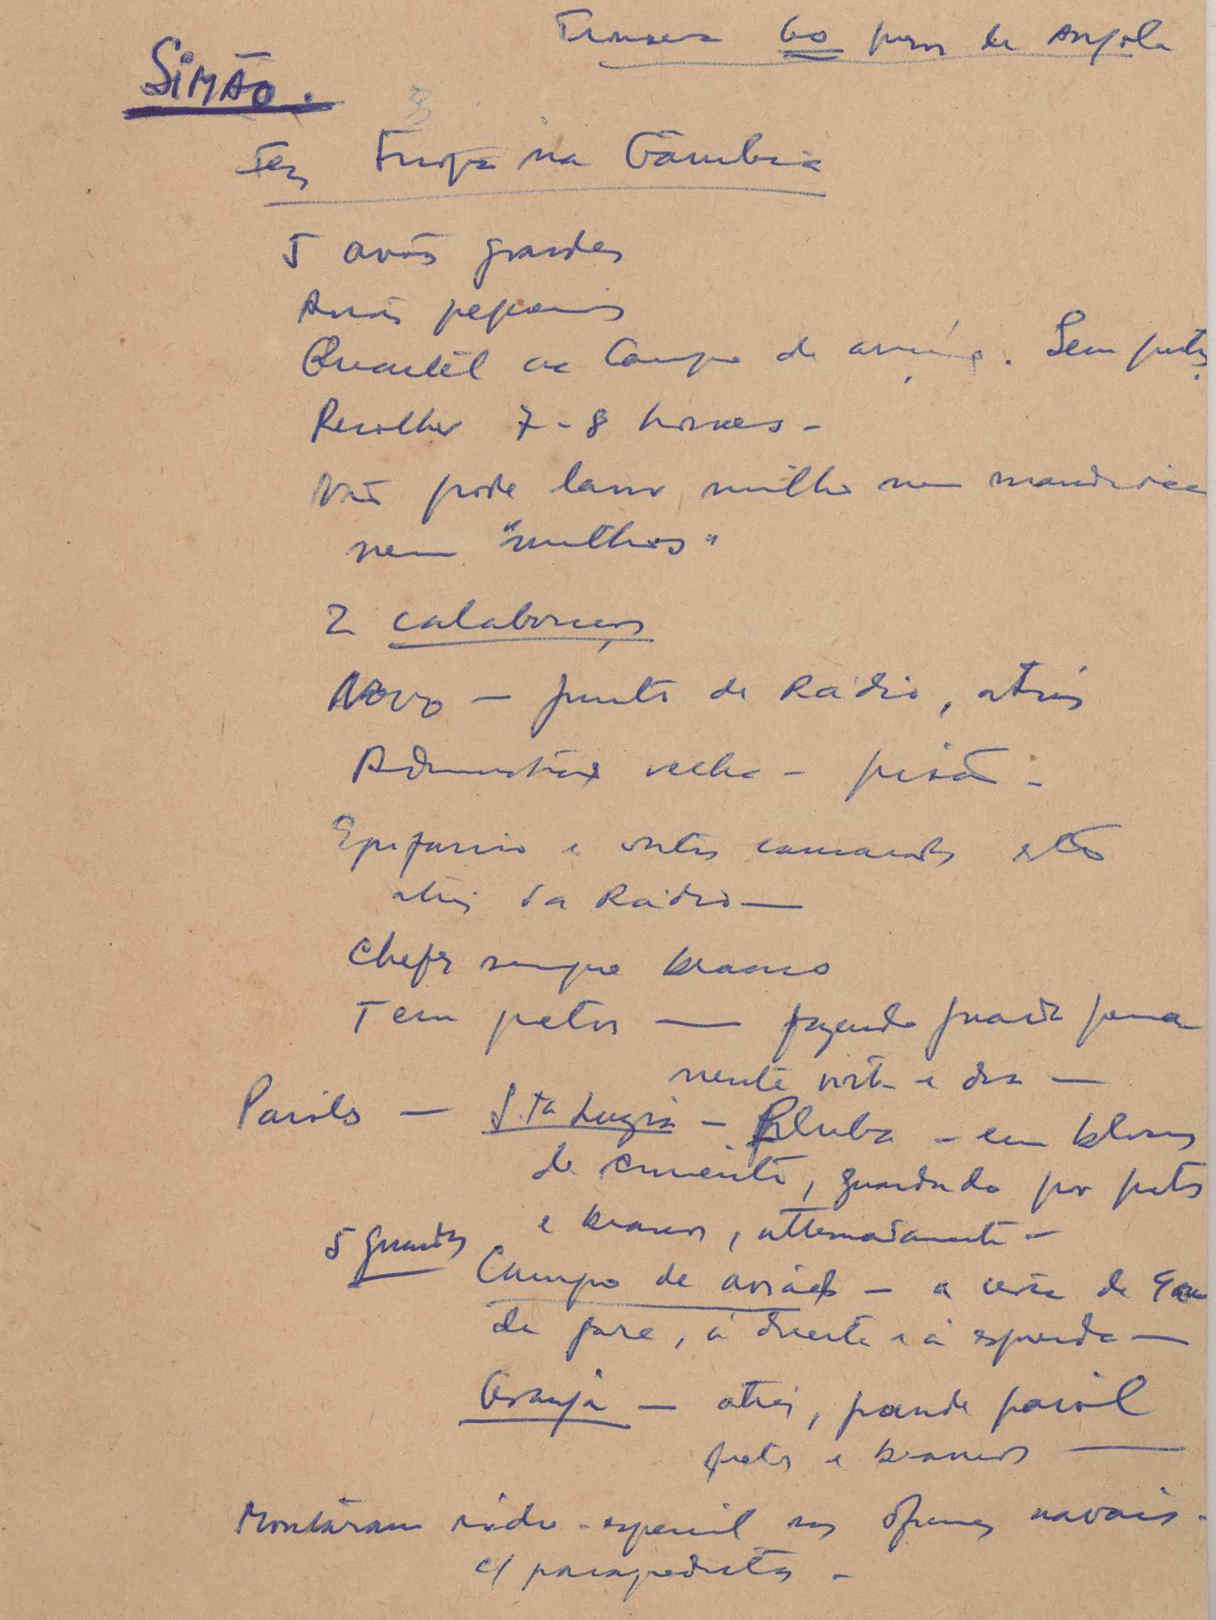 60 para Angola
SIMÃO.
Tem Tropa na Gâmbia
5 aviões grandes
Aviões pequenos
Quartel no Campo de aviação. Sem pretos
Recolher 7-8 horas -
Não pode lavrar milho nem mandioca
nem "milhos"
2 calabouços
Novo — junto da Rádio, atrás
Administração velha - prisão -
Epifanio e outros camaradas estão
atrás da Rádio —
Chefe sempre branco
Tem pretos — fazendo guarda perma
nente noite e dia —
Paióis — S.ta Luzia - - em blocos
de cimento, guardado por pretos
e brancos, alternadamente -
5 guardas
Campo de aviões - a cerca de
de gare, à direita e à esquerda —
Granja — atrás, grande paiol
pretos e brancos —
Montaram rádio especial nas oficinas navais -
c/ paraquedistas -